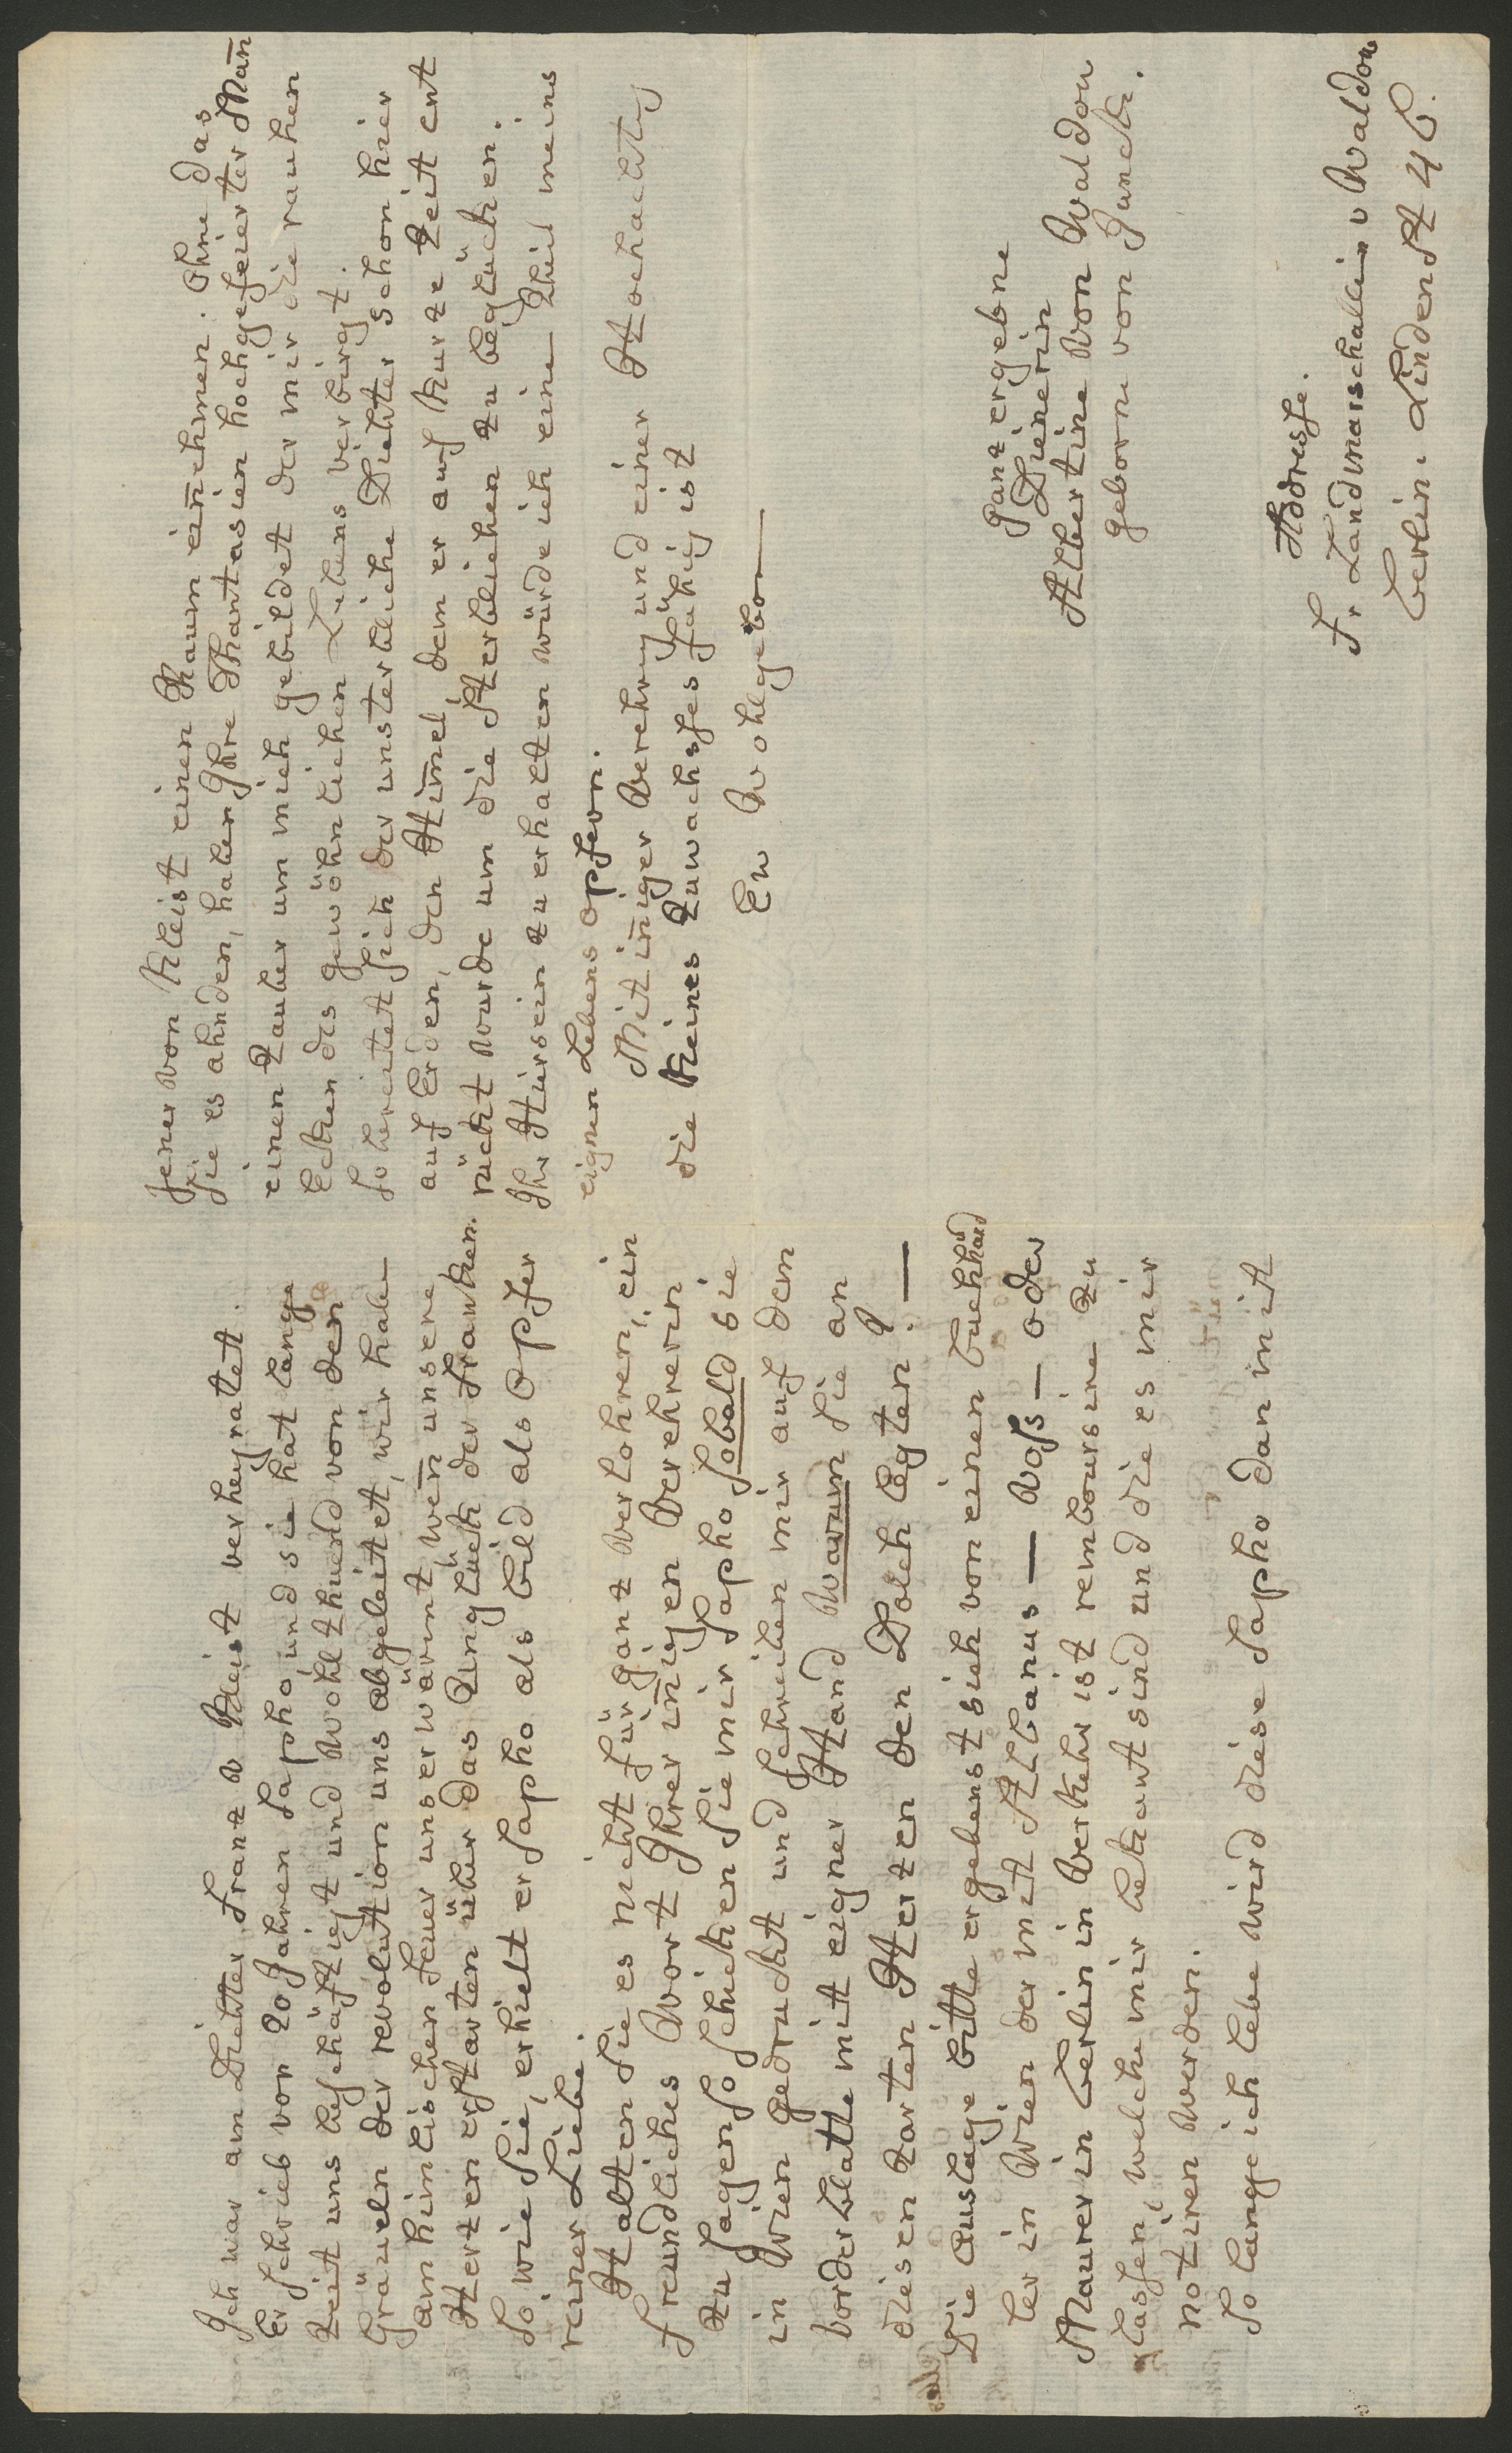 Ich war am Dichter Franz v Kleist verheyratet.
Er schrieb vor 20 Jahren Sapho und sie hat lange
Zeit uns beschäftigt und Wohlthuend von den
Gräueln der revolution uns abgeleitet, wir habe
am himlischen Feuer uns erwärmt, wen̄ unsere
Herzen erstarten über das Unglück der Franken.
So wie Sie, erhielt er Sapho als Bild als Opfer
reiner Liebe.
Halten Sie es nicht für ganz Verlohren, ein
freundliches Wort Ihrer in̄igen Verehrerin
zu sagen so schicken Sie mir Sapho sobald sie
in Wien gedruckt und schreiben mir auf dem
Vorderblatte mit eigner Hand Warum Sie an
diesen zarten Herzen den Dolch legten? —
Die Auslage bitte ergebenst sich von einen Buchhänd
ler in Wien der mit Albanus — Voss — oder
Maurer in Berlin in Verkehr ist remboursiren zu
lassen, welche mir bekant sind und die es mir
notiren werden.
So lange ich lebe wird diese Sapho dan mit
jener von Kleist einen Raum ein̄ehmen. Ohne das
Sie es ahnden, haben Ihre Phantasien hochgefeierter Man̄
einen Zauber um mich gebildet der mir die rauhen
Ecken des gewöhnlichen Lebens verbirgt.
So bereitet sich der unsterbliche Dichter schon hier
auf Erden, den Him̄el, dem er auf kurze Zeit ent
rückt wurde um die Sterblichen zu beglücken.
Ihr Hiersein zu erhalten würde ich eine Theil meins
eignen Lebens opfern.
Mit in̄iger Verehrung und einer Hochachtung
die keines Zuwachses fähig ist
Ew Wohlgeborn
ganz ergebne
Dienerin
Albertine von Waldow
geborne von Junck.
Addresse.
Fr Landmarschallin v Waldow
Berlin. Linden St 4 b.